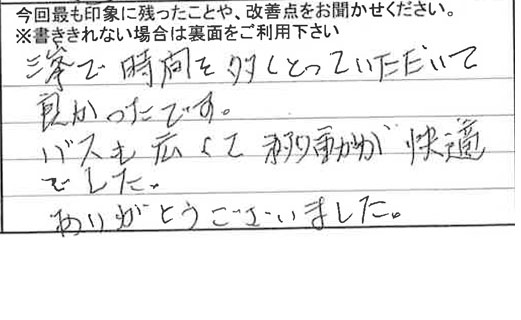 今回最も印象に残ったことや、改善点をお聞かせください。
※書ききれない場合は裏面をご利用下さい
三峯で時間を多くとっていただいて
良かったです。
バスも広くて移動が快適
でした。
ありがとうございました。